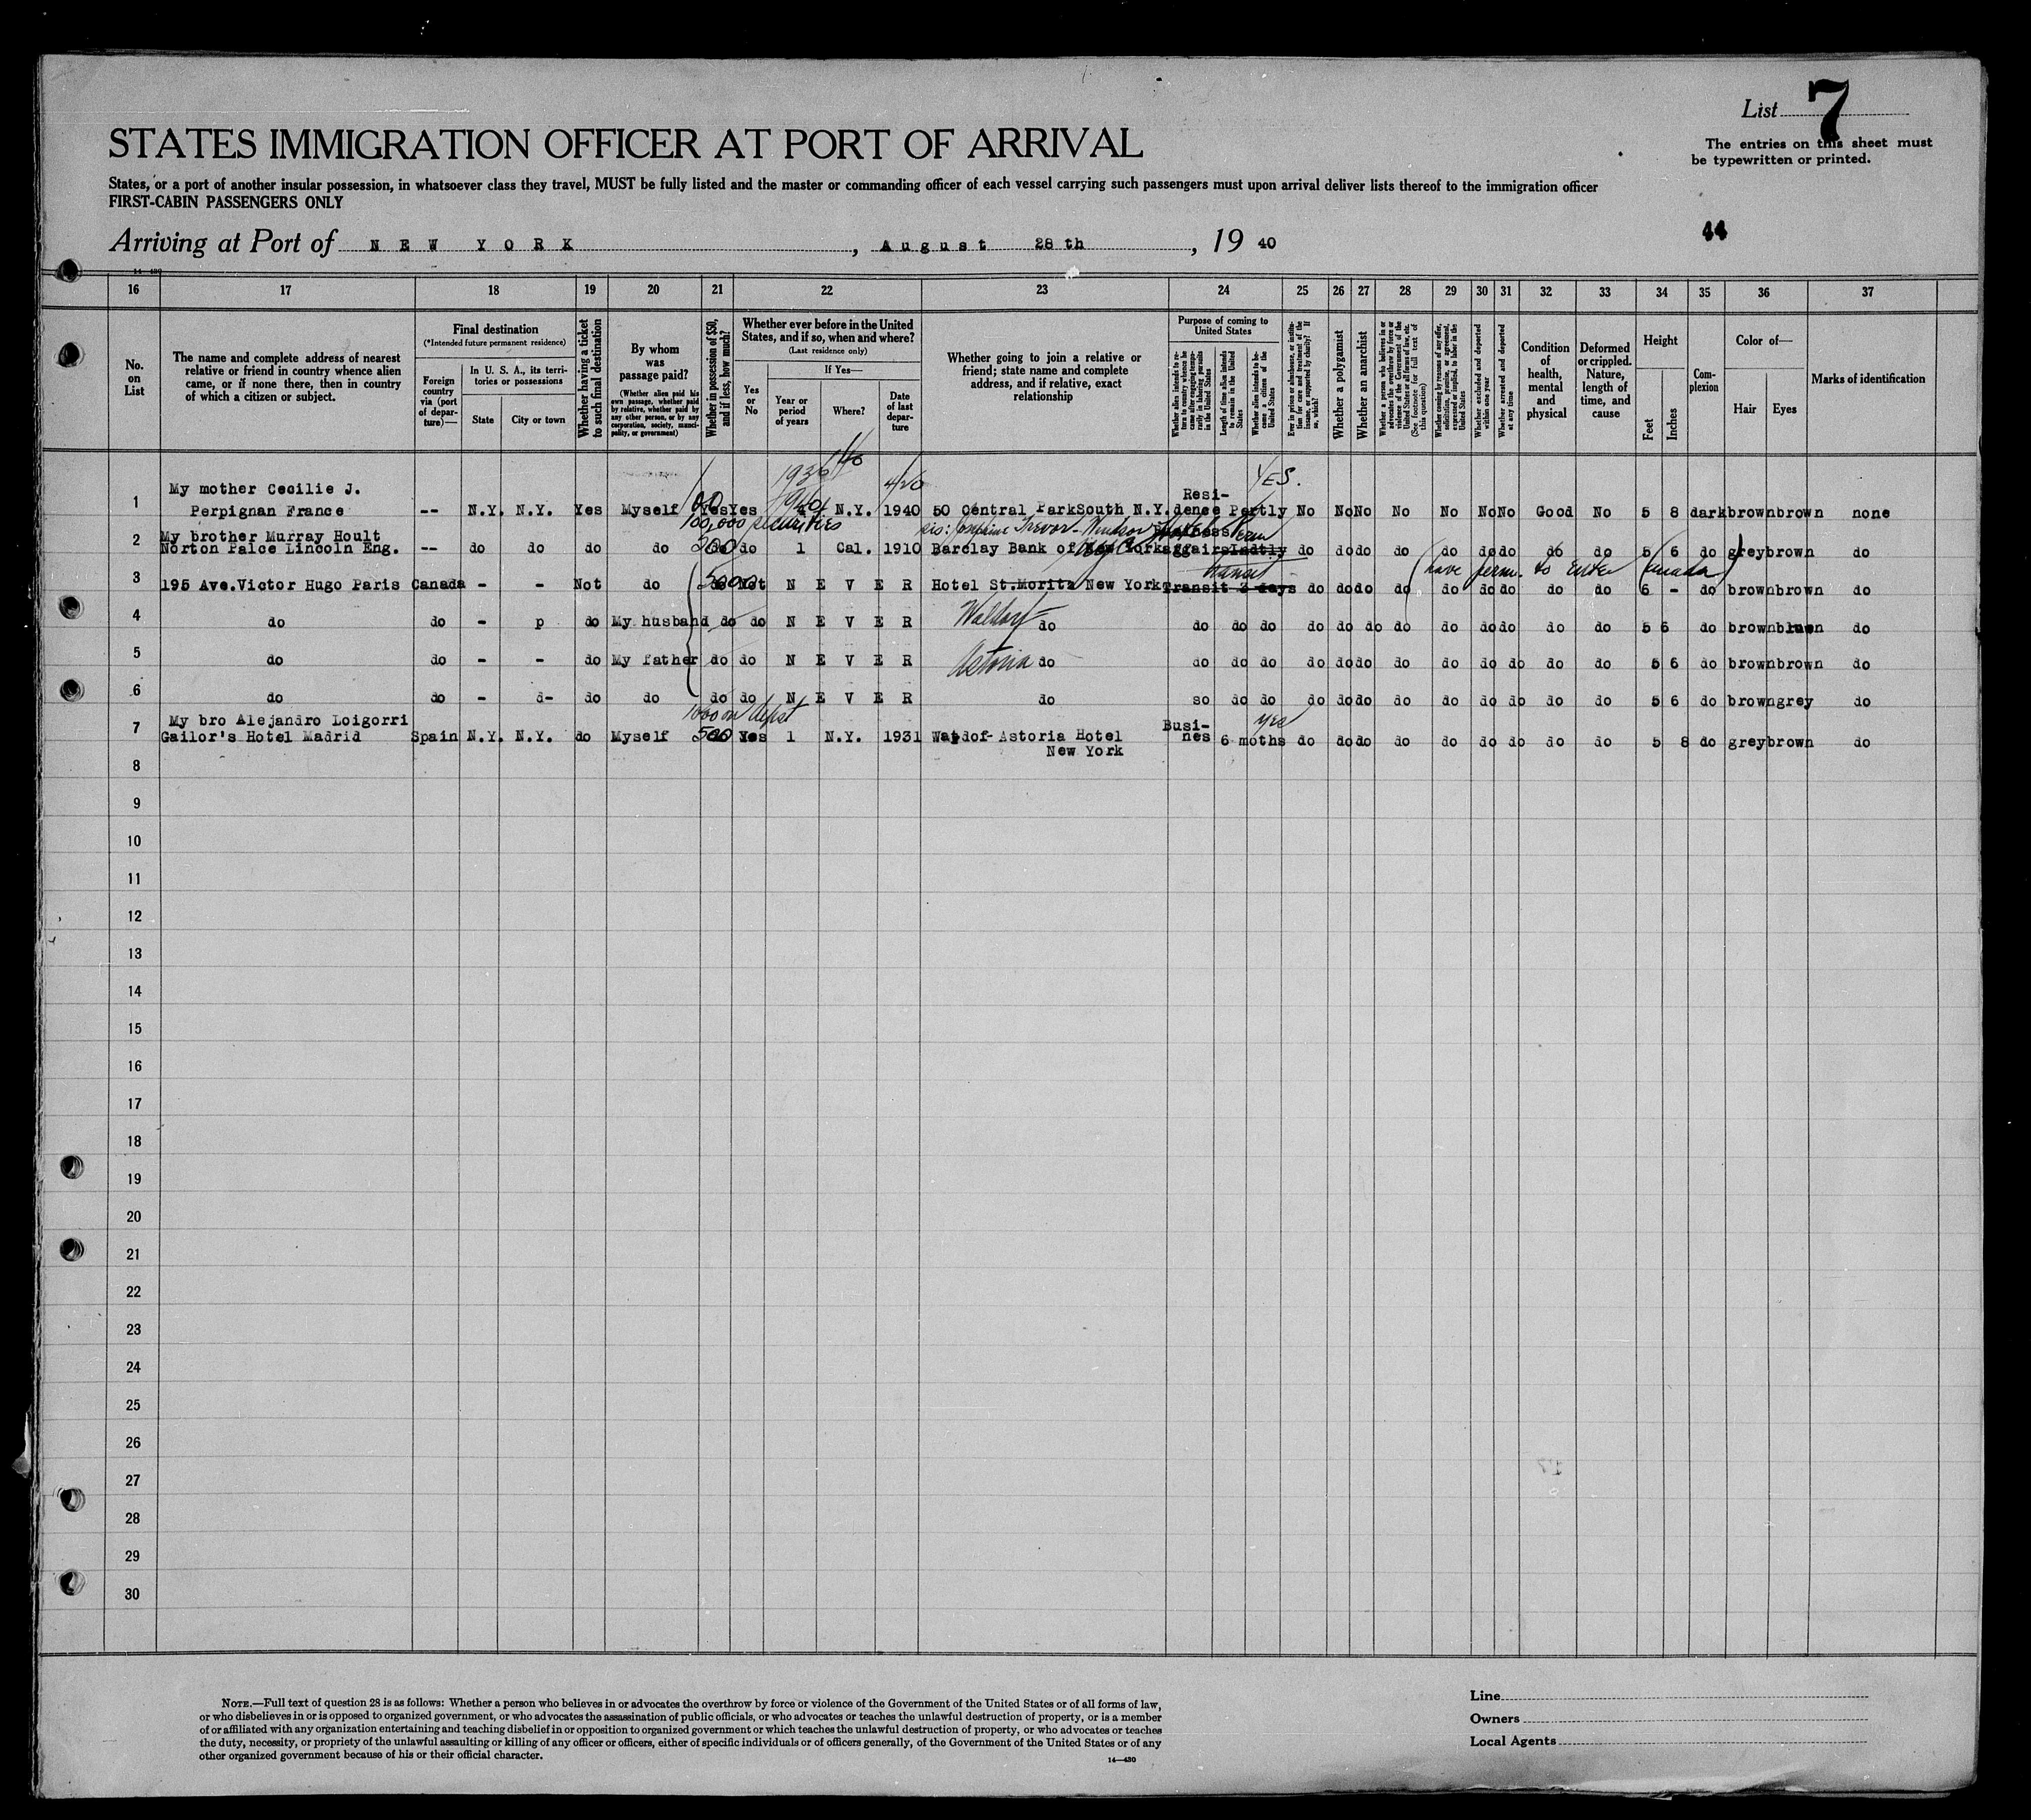 List 7
The entries on this sheet must
be typewritten or printed.
STATES IMMIGRATION OFFICER AT PORT OF ARRIVAL
States, or a port of another insular possession, in whatsoever class they travel, MUST be fully listed and the master or commanding officer of each vessel carrying such passengers must upon arrival deliver lists thereof to the immigration officer
FIRST-CABIN PASSENGERS ONLY
44
Arriving at Port of NEW YORK, August 28th, 19 40
14-430
16 17 18 19 20 21 22 23 24 25 26 27 28 29 30 31 32 33 34 35 36 37
No. on List
The name and complete address of nearest
relative or friend in country whence alien
came, or if none there, then in country
of which a citizen or subject.
Final destination
(*Intended future permanent residence)
Foreign country via (port of departure)—
In U. S. A., its territories or possessions
State
City or town
Whether having a ticket to such final destination
By whom was passage paid?
(Whether alien paid his own passage, whether paid by relative, whether paid by any other person, or by any corporation, society, municipality, or government)
Whether in possession of $50, and if less, how much?
Whether ever before in the United States, and if so, when and where?
(Last residence only)
Yes or No
If Yes—
Year or period of years
Where?
Date of last departure
Whether going to join a relative or
friend; state name and complete
address, and if relative, exact
relationship
Purpose of coming to United States
Whether alien intends to return to country whence he came after engaging temporarily in laboring pursuits in the United States
Length of time alien intends to remain in the United States
Whether alien intends to become a citizen of the United States
Ever in prison or almshouse, or institution for care and treatment of the insane, or supported by charity? If so, which?
Whether a polygamist
Whether an anarchist
Whether a person who believes in or advocates the overthrow by force or violence of the Government of the United States or all forms of law, etc. (See footnote for full text of this question)
Whether coming by reasons of any offer, solicitation, promise, or agreement, expressed or implied, to labor in the United States
Whether excluded and deported within one year
Whether arrested and deported at any time
Condition of health, mental and physical
Deformed or crippled. Nature, length of time, and cause
Height
Feet
Inches
Complexion
Color of—
Hair
Eyes
Marks of identification
1936 4/20 YES.
My mother Cecilie J. Resi-
1 Perpignan France -- N.Y. N.Y. Yes Myself Yes Yes N.Y. 1940 50 Central ParkSouth N.Y. dence Pertly No No No No No No No Good No 5 8 dark brown brown none
100,000 securities sis: Josephine Trevor - Windsor Hotel Perm
My brother Murray Hoult Business
2 Norton Palce Lincoln Eng. -- do do do do 500 do 1 Cal. 1910 Barclay Bank of New York affairs Ladtly do do do do do do do do do 5 6 do grey brown do
transit (have perm. to enter Canada)
3 195 Ave.Victor Hugo Paris Canada - - Not do 5000 Not NEVER Hotel St.Moritz New York Transit 3 days do do do do do do do do do 6 - do brown brown do
Waldorf
4 do do - p do My husband do do NEVER do do do do do do do do do do do do do 5 6 do brown do
Astoria
5 do do - - do My father do do NEVER do do do do do do do do do do do do do 5 6 do brown brown do
6 do do - d- do do do do NEVER do so do do do do do do do do do do do 5 6 do brown grey do
yes
My bro Alejandro Loigorri Busi-
7 Gailor's Hotel Madrid Spain N.Y. N.Y. do Myself 500 Yes 1 N.Y. 1931 Waldof-Astoria Hotel nes 6 moths do do do do do do do do do 5 8 do grey brown do
New York
8
9
10
11
12
13
14
15
16
17
18
19
20
21
22
23
24
25
26
27
28
29
30
NOTE.—Full text of question 28 is as follows: Whether a person who believes in or advocates the overthrow by force or violence of the Government of the United States or of all forms of law,
or who disbelieves in or is opposed to organized government, or who advocates the assassination of public officials, or who advocates or teaches the unlawful destruction of property, or is a member
of or affiliated with any organization entertaining and teaching disbelief in or opposition to organized government or which teaches the unlawful destruction of property, or who advocates or teaches
the duty, necessity, or propriety of the unlawful assaulting or killing of any officer or officers, either of specific individuals or of officers generally, of the Government of the United States or of any
other organized government because of his or their official character.
14—430
Line
Owners
Local Agents